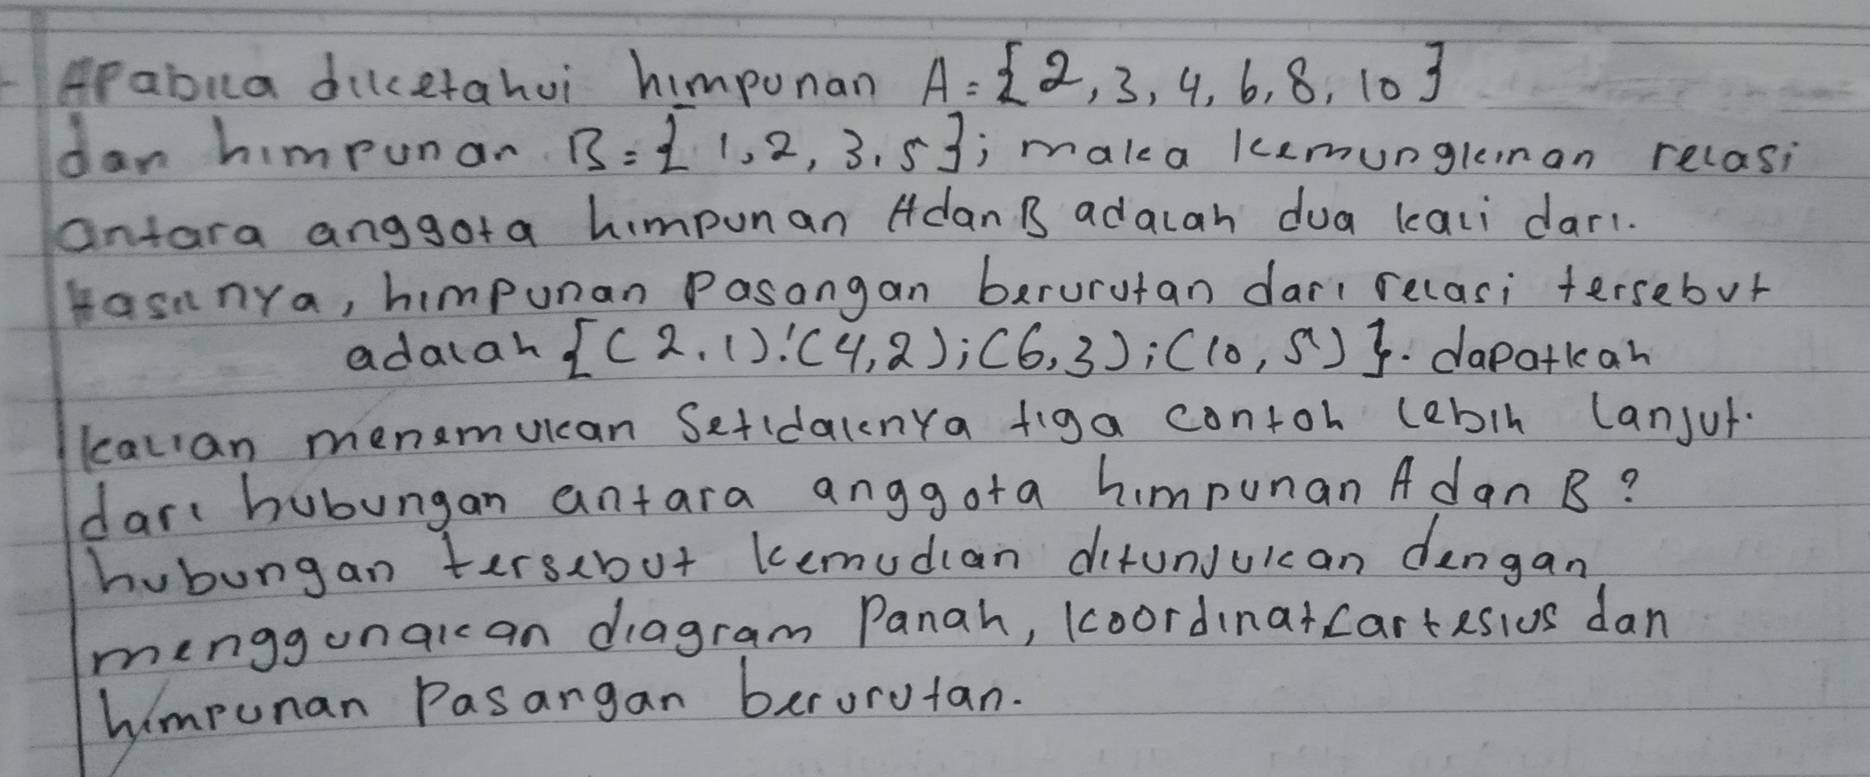 Apabila diketahui himpunan A = {2, 3, 4, 6, 8, 10}
dan himpunan B = {1, 2, 3, 5}; maka kemungkinan relasi
antara anggota himpunan A dan B adalah dua kali dari.
Hasilnya, himpunan pasangan berurutan dari relasi tersebut
adalah {(2, 1); (4, 2); (6, 3); (10, 5)}. dapatkah
kalian menemukan setidaknya tiga contoh lebih lanjut.
dari hubungan antara anggota himpunan A dan B?
hubungan tersebut kemudian ditunjukan dengan
menggunakan diagram panah, koordinat cartesius dan
himpunan pasangan berurutan.